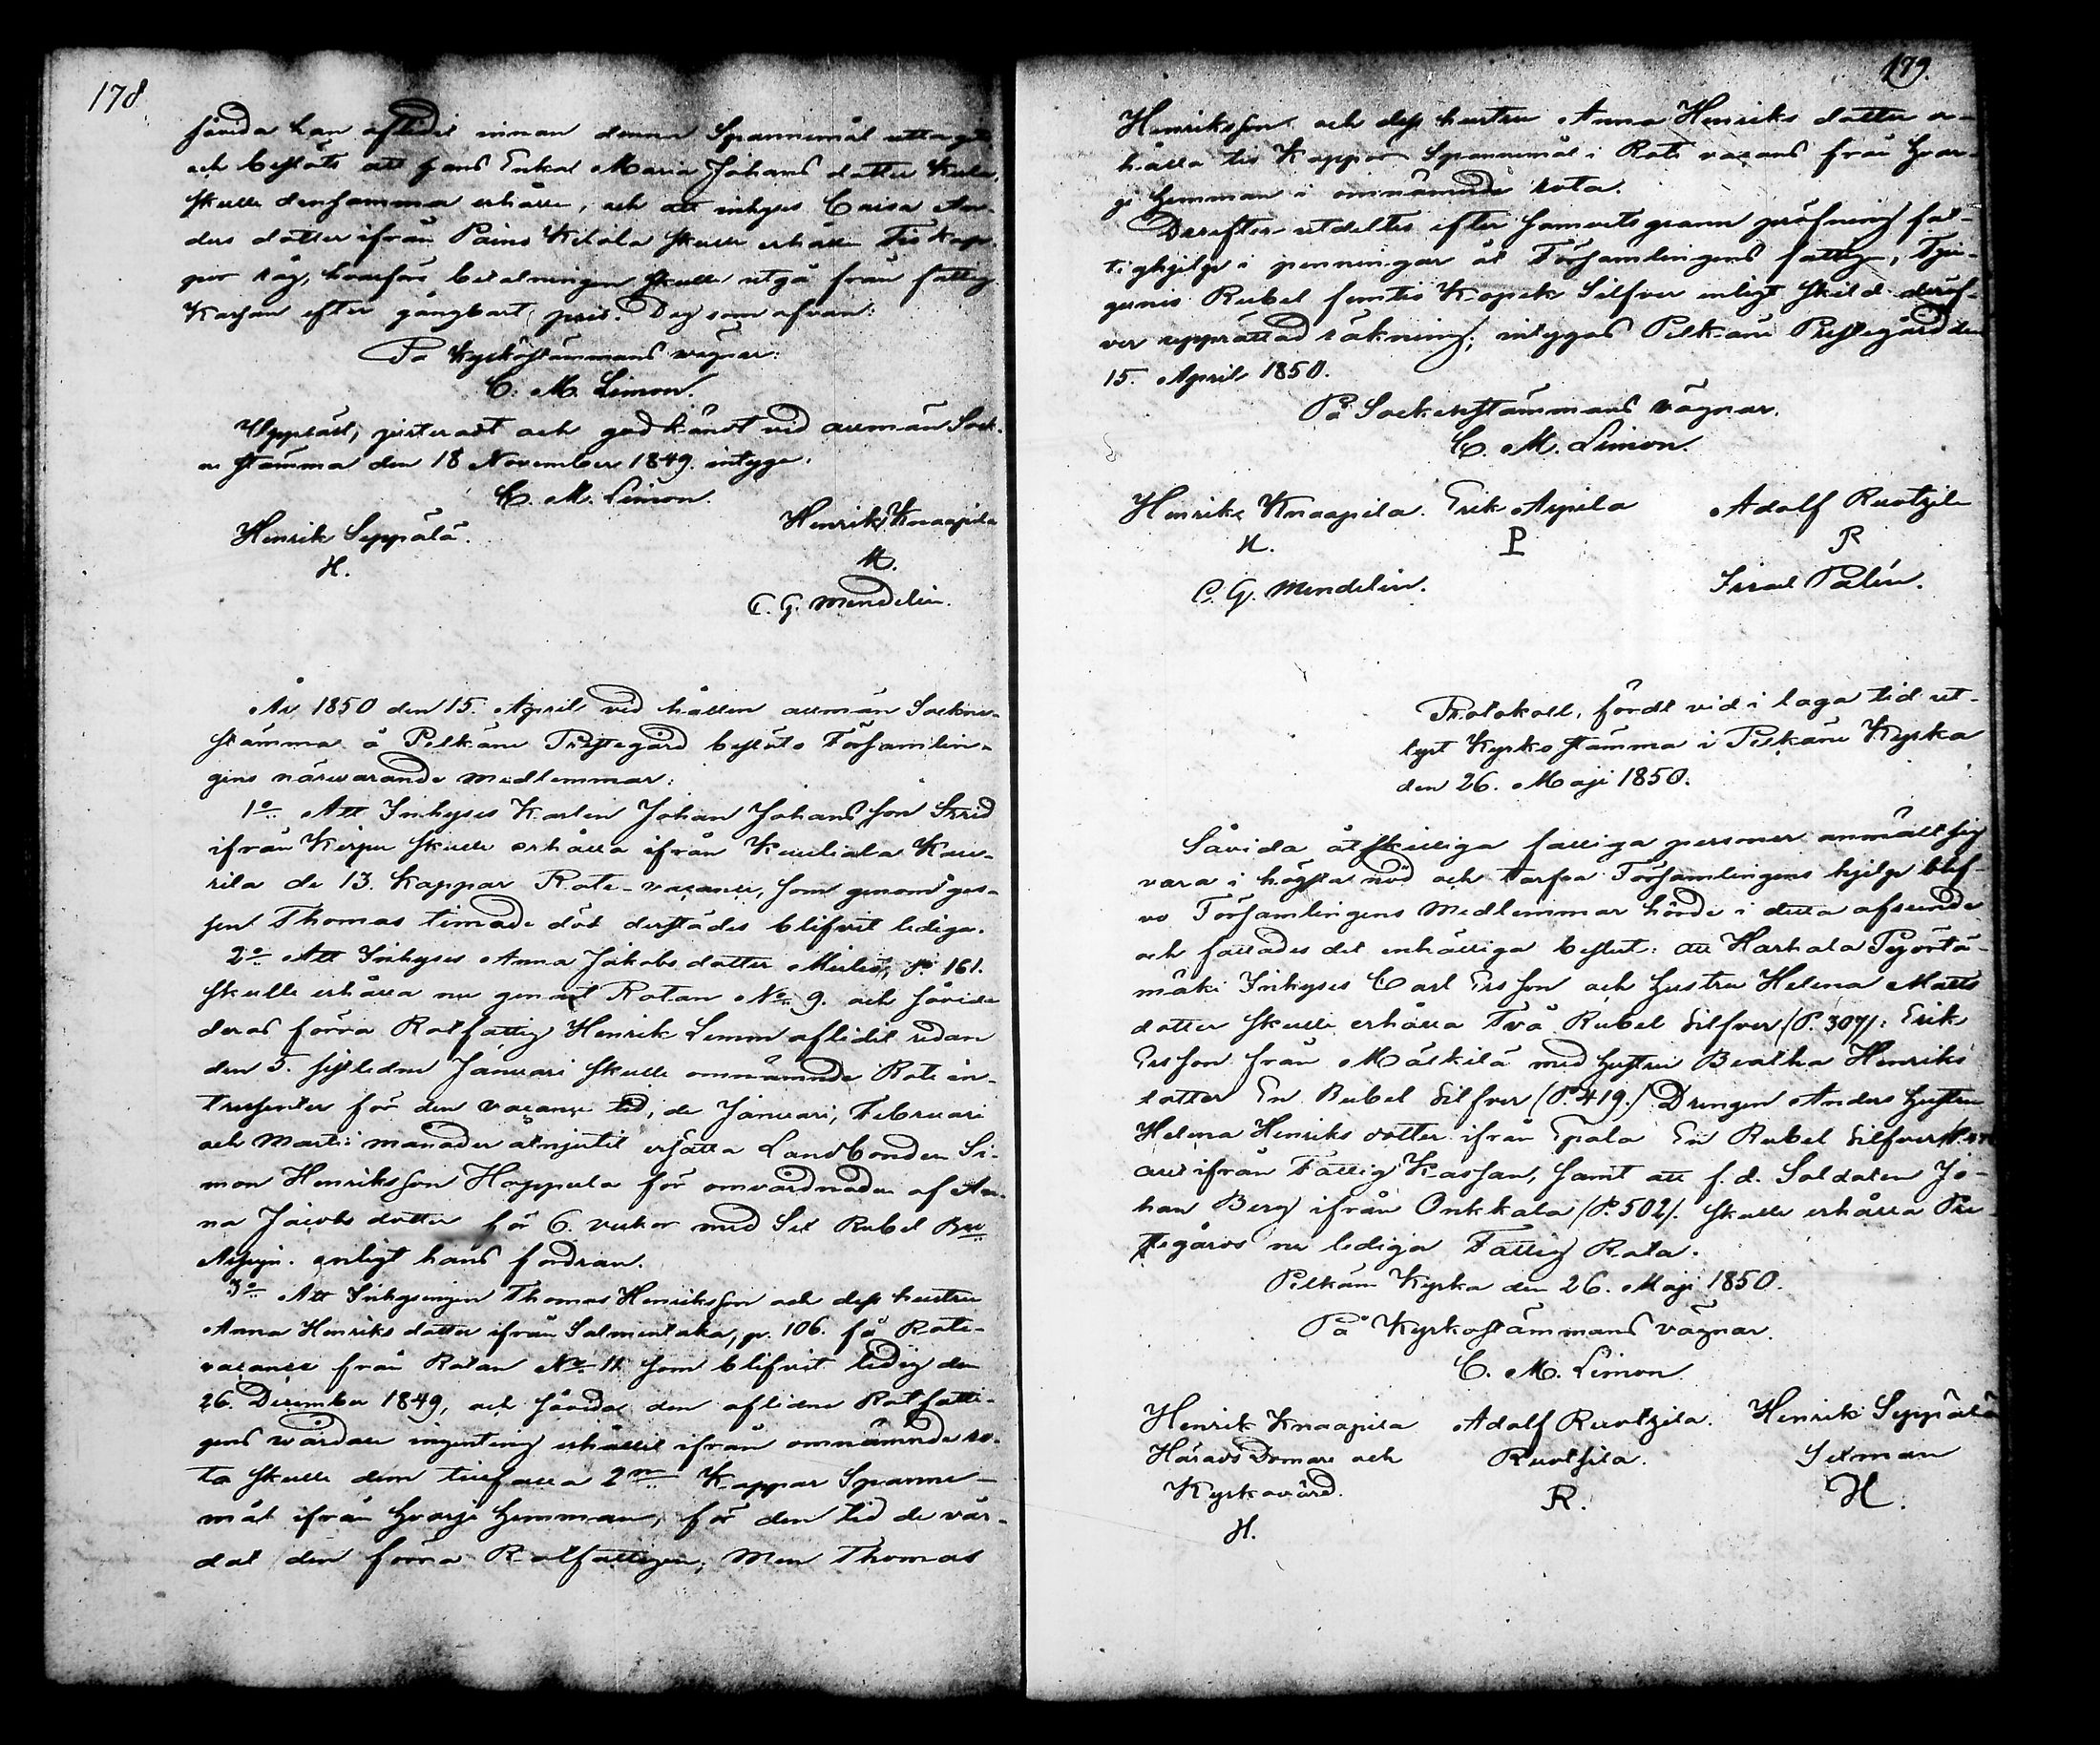 178
såvida han aflidit innan denna Spannemål uttagits
och beslöts att hans Enka Maria Johans dotter
skulle densamma erhålla, och att inhyses Caisa An-
ders dotter ifrån Paino Kekola skulle erhålla Tio Kap-
por råg, hvarföre betalningen skulle utgå från fattig
Kassan efter gångbart pris. Dag som ofvan:
På Kyrkostämmans vägnar:
C. M. Limon.
Uppläst, justeradt och godkändt vid allmän Sock-
ne stämma den 18 November 1849. intyga:
C. M. Limon.
Henrik Seppälä. Henrik Knaapila
H. H.
C. G. Mendelin.
År 1850 den 15. April vid hållen allmän Sockne-
stämma å Pelkäne Prestegård beslöto Församlin-
gens närvarande medlemmar:
1:o Att Inhyses Karlen Johan Johansson Skrid
ifrån Kirpu skulle erhålla ifrån Kuuliala Kau-
rila de 13. kappar Rote-vacance, som genom
sen Thomas timade död derstädes blifvit lediga.
2:o Att Inhyses Anna Jakobs dotter p. 161.
skulle erhålla nu genast Rotan No 9. och såvida
deras förra Rotfattig Henrik Lemm aflidit redan
den 5. sistledne Januari skulle omnämnde Rote in-
tressenter för den vacance tid, de Januari, Februari
och Martii månader åtnjutit ersätta Landbonden Si-
mon Henriksson Hoppula för omvårdnaden af An-
na Jacobs dotter för 6. veckor med Sex Rubel Bco
Assign. enligt hans fordran.
3:o Att Inhysingen Thomas Henriksson och dess hustru
Anna Henriks dotter ifrån Salmentaka, p. 106. få Rote-
vacance från Rotan No 11 som blifvit ledig den
26. December 1849, och såvida den aflidne Rotfatti-
gens vårdare ingenting erhållit ifrån omnämnde ro-
ta skulle dem tillfalla 2:ne Kappar Spanne-
mål ifrån hvarje hemman, för den tid de vår-
dat den förra Rotfattigen; men Thomas
179.
Henriksson och dess hustru Anna Henriks dotter er-
hålla tio Kappar Spannemål i Rote vacans från hvar-
je hemman i omnämnde rota.
Derefter utdeltes efter samvetsgrann pröfning fat-
tighjelp i penningar åt Församlingens fattige, Tju-
gunio Rubel femtio Kopek Silfver enligt skild deröf-
ver upprättad räkning; intygas Pelkäne Prestegård den
15. April 1850.
På Sockenstämmans vägnar.
C. M. Limon.
Henrik Knaapila. Erik Arpila Adolf Ruotzila
H. P R
C. G. Mendelin. Israel Palén.
Protokoll, fördt vid i laga tid ut-
lyst Kyrkostämma i Pelkäne Kyrka
den 26. Maji 1850.
Såvida åtskilliga fattiga personer anmält sig
vara i högsta nöd och tarfva Församlingens hjelp blef-
vo Församlingens Medlemmar hörde i detta afseende
och fattades det enhälliga beslut: att Harhala Pyörtä-
mäki Inhyses Carl Ersson och hustru Helena Matts
dotter skulle erhålla Två Rubel Silfver (P. 307): Erik
Ersson från Mälkilä med hustru Beatha Henriks
dotter En Rubel Silfver (P. 419.) Drengen Anders hustru
Helena Henriks dotter ifrån Epala En Rubel Silfver
allt ifrån Fattig Kassan, samt att f. d. Soldaten Jo-
han Berg ifrån Onkkala (P. 502). skulle erhålla Pre-
stegårds nu lediga Fattig Rota.
Pelkäne Kyrka den 26. Maji 1850.
På Kyrkostämmans vägnar.
C. M. Limon
Henrik Knaapila Adolf Ruotzila. Henrik Seppälä
Härads Domare och Ruotsila. Sexman
Kyrkovärd. R. H.
H.